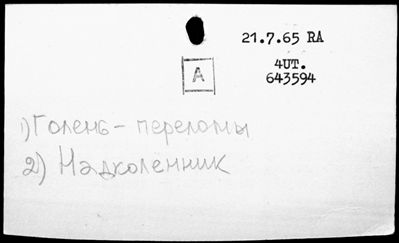 21.7.65 RA
A
4UT.
643594
1) Голень - переломы
2) Надколенник